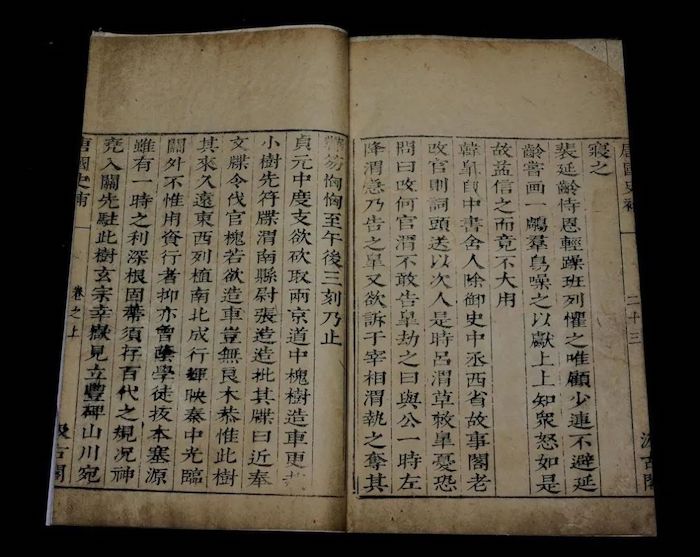 唐國史補 二十三 汲古閣
寢之
裴延齡恃恩輕躁班列懼之唯顧少連不避延
齡嘗画一鵰羣鳥噪之以獻上上知衆怒如是
故益信之而竟不大用
韓皐自中書舍人除御史中丞西省故事閣老
改官則詞頭送以次人是時呂渭草敕皐憂恐
問曰改何官渭不敢告皐劫之曰與公一時左
降渭急乃告之皐又欲訴于宰相渭執之奪其
鞾笏恟恟至午後三刻乃止
貞元中度支欲砍取兩京道中槐樹造車更栽
小樹先符牒渭南縣尉張造造批其牒曰近奉
文牒令伐官槐若欲造車豈無良木恭惟此樹
其來久遠東西列植南北成行輝映秦中光臨
關外不惟用資行者抑亦曾蔭學徒拔本塞源
雖有一時之利深根固蔕須存百代之規况神
堯入關先駐此樹玄宗幸嶽見立豐碑山川宛
唐國史補 卷之上 汲古閣